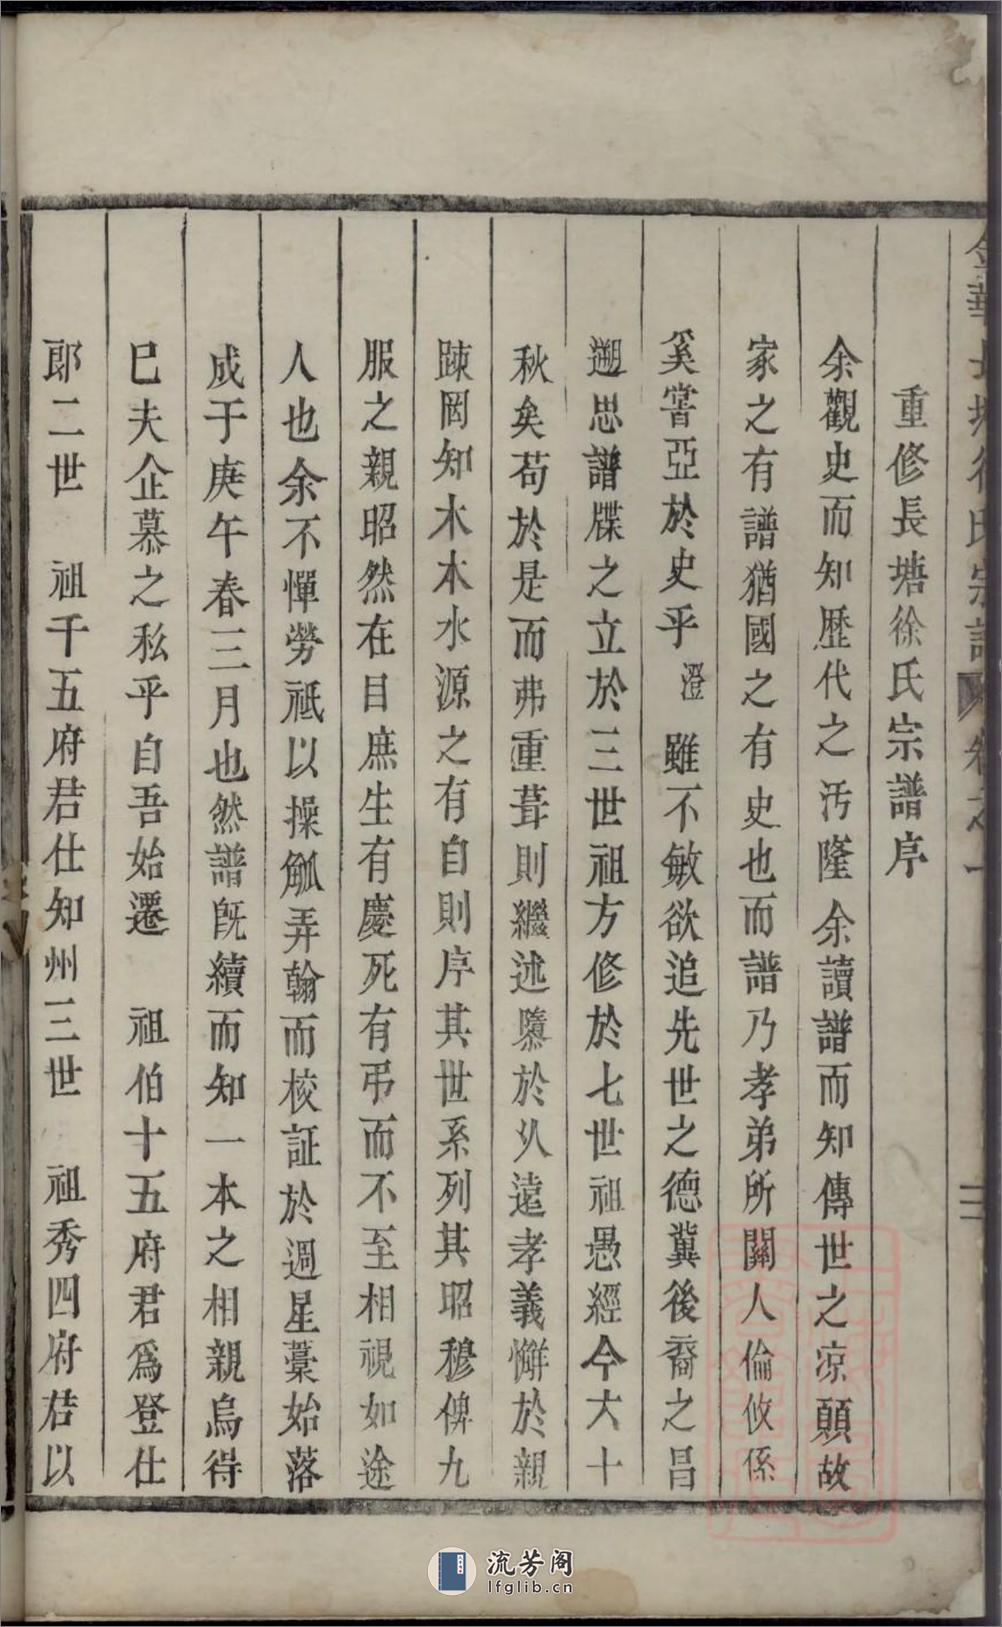 金華長塘徐氏宗譜 卷之一
重修長塘徐氏宗譜序
余觀史而知歷代之汚隆余讀譜而知傳世之凉顛故
家之有譜猶國之有史也而譜乃孝弟所關人倫攸係
奚啻亞於史乎澄雖不敏欲追先世之德冀後裔之昌
遡思譜牒之立於三世祖方修於七世祖愚經今六十
秋矣苟於是而弗重葺則繼述隳於乆遠孝義懈於親
踈罔知木本水源之有自則序其世系列其昭穆俾九
服之親昭然在目庶生有慶死有弔而不至相視如途
人也余不憚勞祇以操觚弄翰而校証於週星藁始落
成于庚午春三月也然譜既續而知一本之相親烏得
巳夫企慕之私乎自吾始遷 祖伯十五府君爲登仕
郎二世 祖千五府君仕知州三世 祖秀四府君以
流芳阁
lfglib.cn